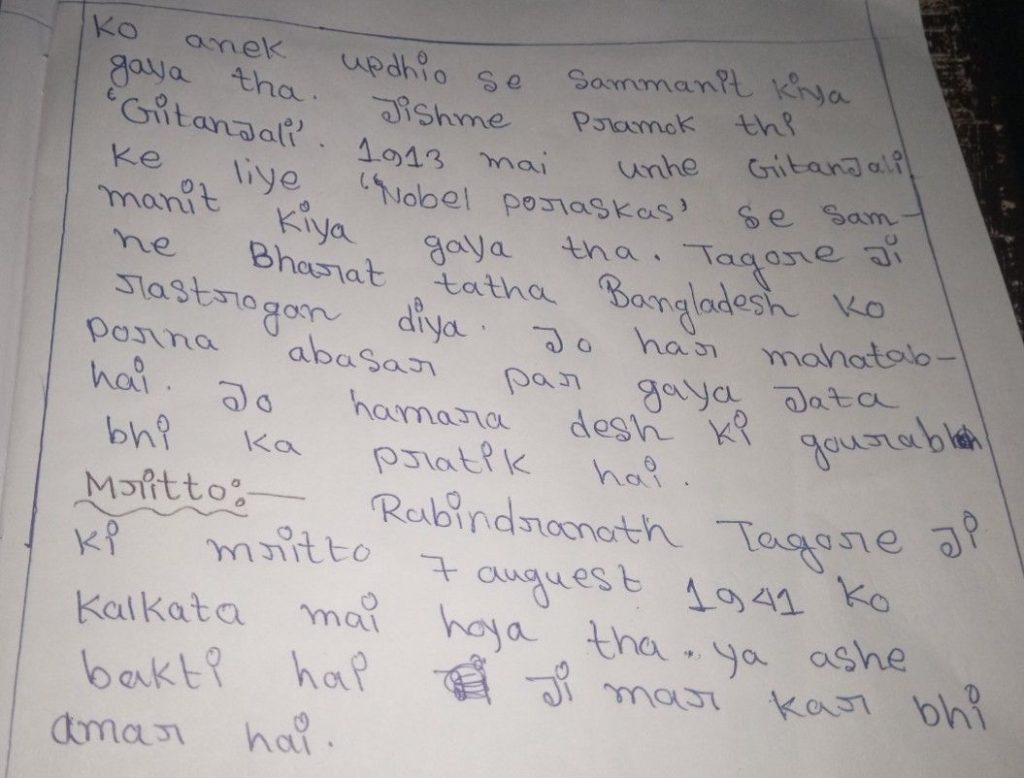 Ko anek updhio se Sammanit Kiya
gaya tha. Jishme Pramok thi
'Giitanjali'. 1913 mai unhe Gitanjali
Ke liye "Nobel poraskas' se Sam-
manit Kiya gaya tha. Tagore Ji
ne Bharat tatha Bangladesh Ko
rastrogan diya. Jo har mahatab-
porna abasar par gaya Jata
hai. Jo hamara desh Ki gourab
bhi Ka pratik hai.
Mriitto:—
Rabindranath Tagore Ji
Ki mriitto 7 auguest 1941 Ko
Kalkata mai hoya tha. ya ashe
bakti hai Ji mar kar bhi
amar hai.